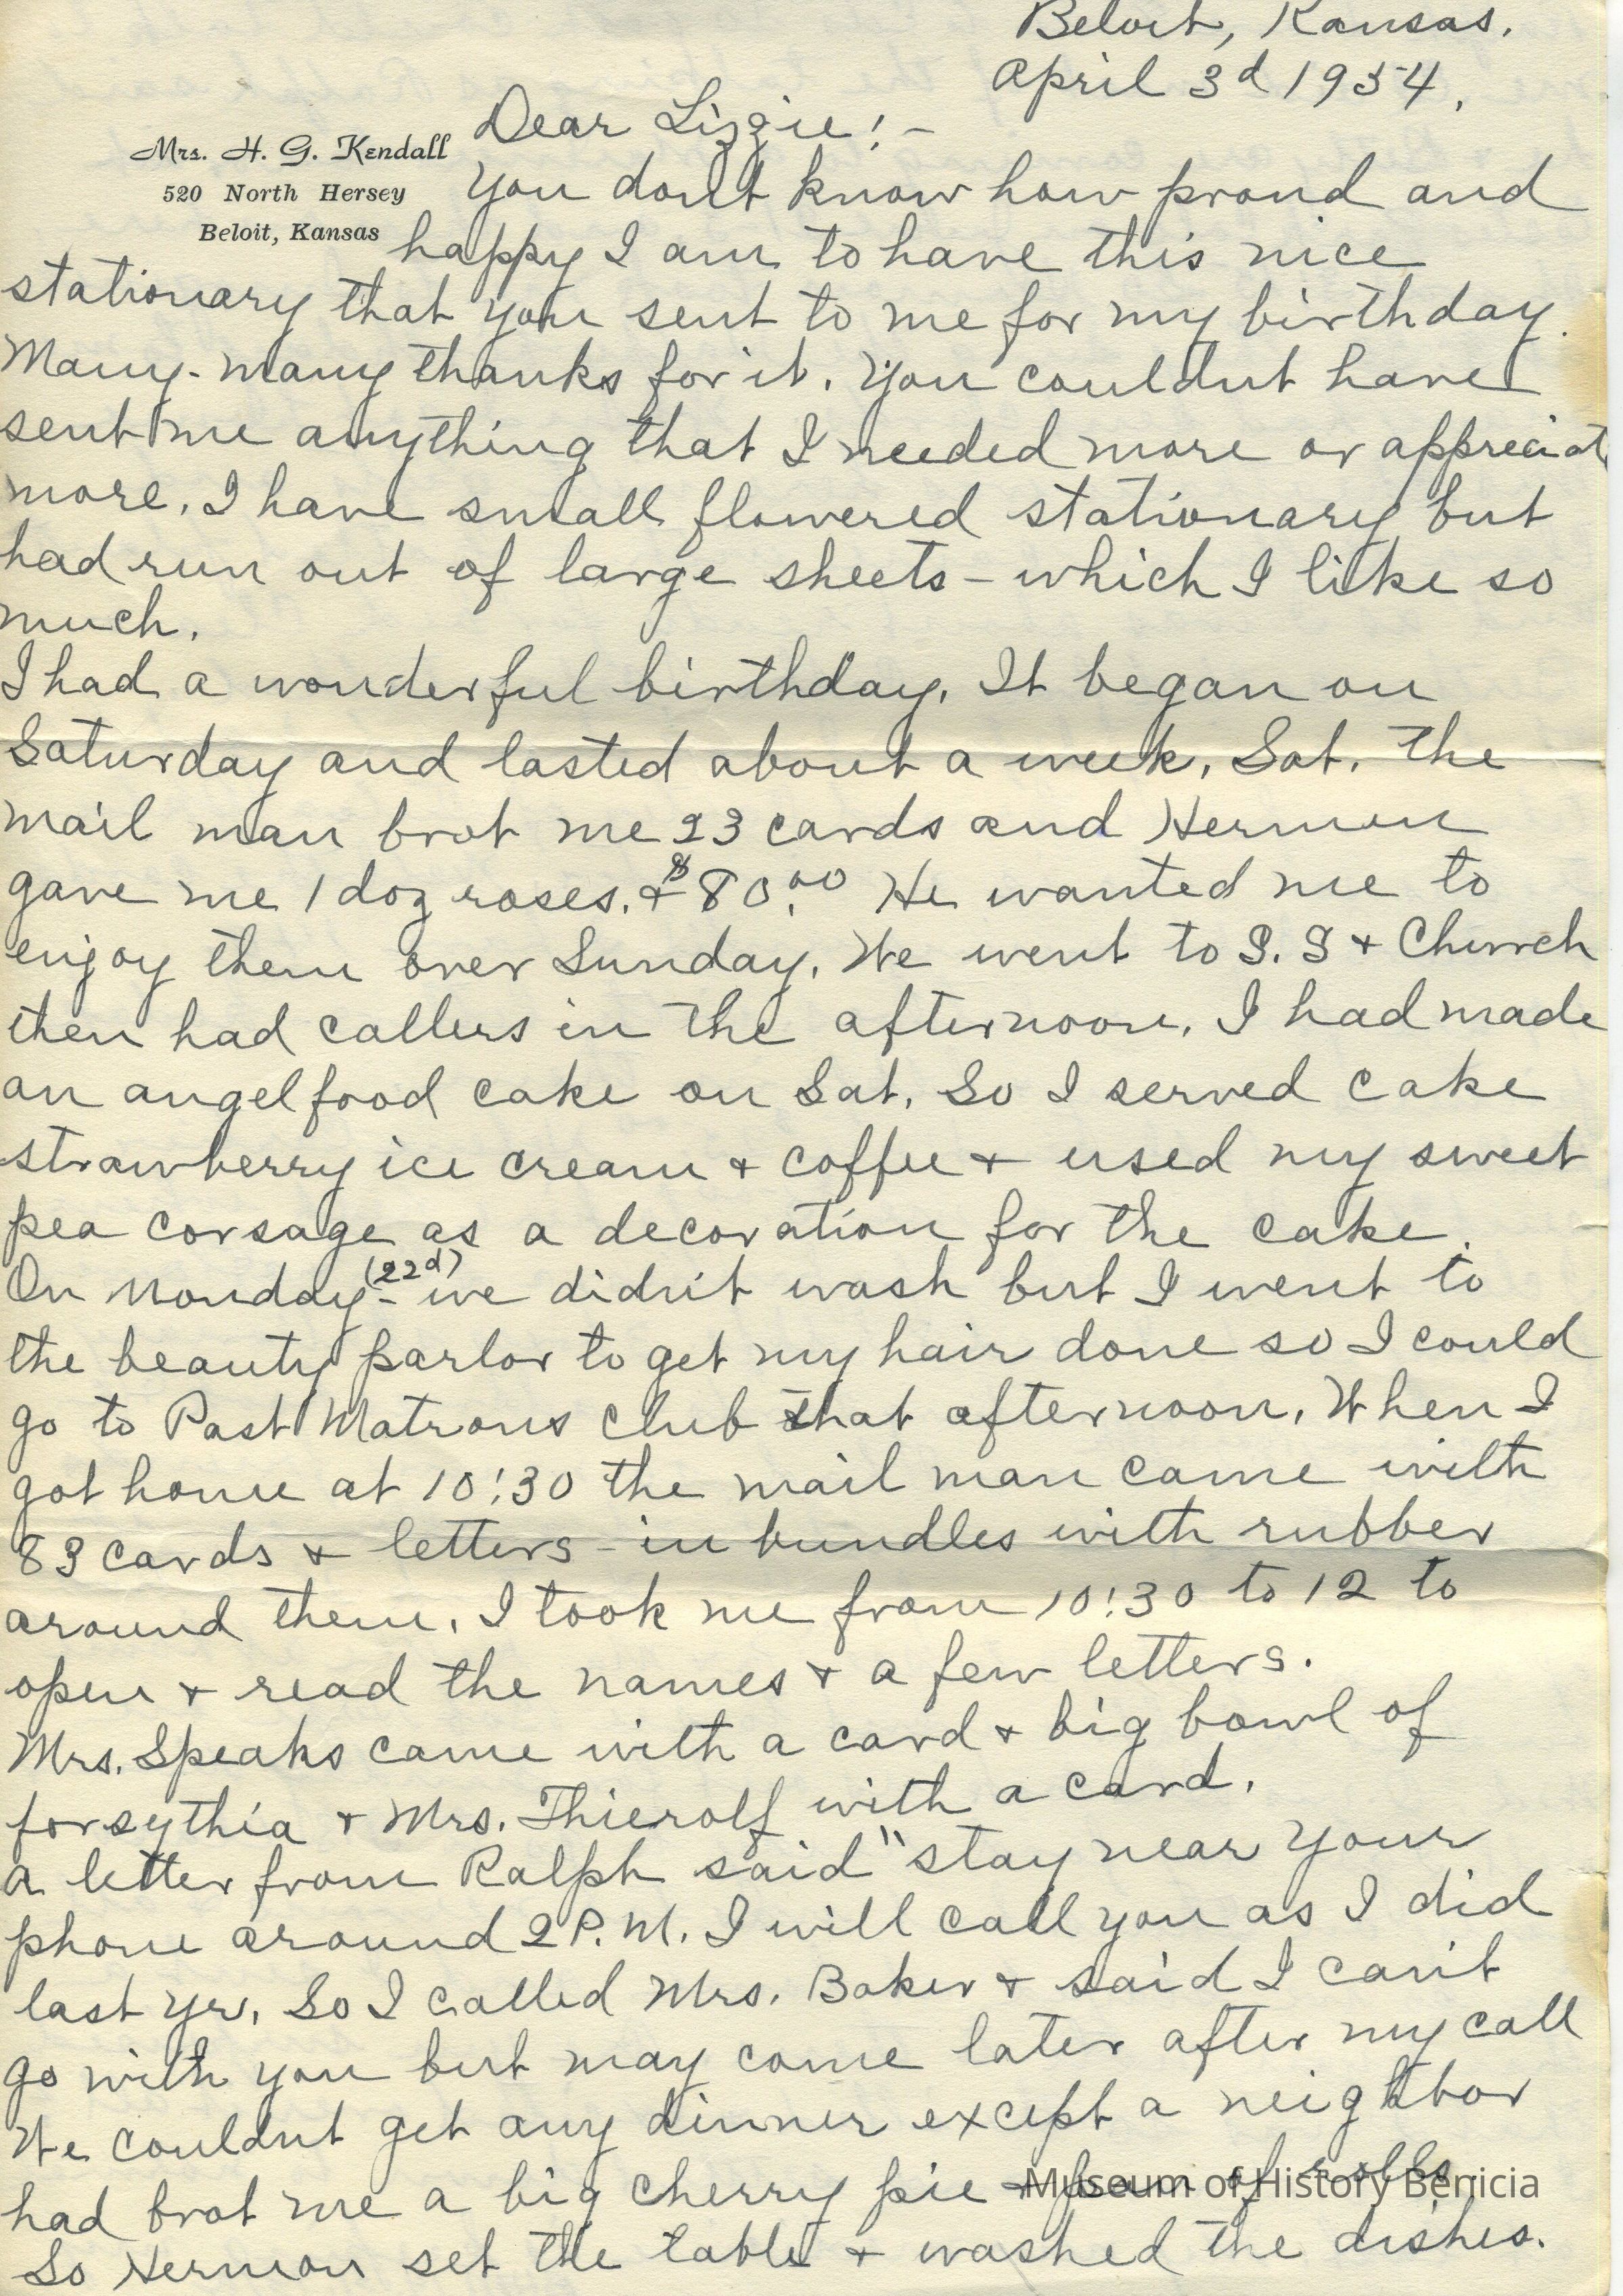 Beloit, Kansas.
April 3d 1954.
Dear Lizzie! -
Mrs. H. G. Kendall
520 North Hersey
Beloit, Kansas
You don't know how proud and
happy I am to have this nice
stationary that you sent to me for my birthday.
Many - many thanks for it. You couldnt have
sent me anything that I needed more or appreciat
more. I have small flowered stationary but
had run out of large sheets - which I like so
much.
I had a wonderful birthday. It began on
Saturday and lasted about a week. Sat. the
mail man brot me 23 cards and Hermon
gave me 1 doz roses. + $80.00 He wanted me to
enjoy them over Sunday. We went to S. S + Church
then had callers in the afternoon. I had made
an angel food cake on Sat. So I served cake
strawberry ice cream + coffee + used my sweet
pea corsage as a decoration for the cake.
On Monday (22d) - we didn't wash but I went to
the beauty parlor to get my hair done so I could
go to Past Matrons Club that afternoon. When I
got home at 10:30 the mail man came with
83 cards + letters - in bundles with rubber
around them. I took me from 10:30 to 12 to
open + read the names + a few letters.
Mrs. Speaks came with a card + big bowl of
forsythia + Mrs. Thierolf with a card.
A letter from Ralph said "stay near your
phone around 2 P.M. I will call you as I did
last yr. So I called Mrs. Baker + said I can't
go with you but may come later after my call
We couldnt get any dinner except a neighbor
had brot me a big cherry pie + pan of rolls.
So Hermon set the table + washed the dishes.
Museum of History Benicia